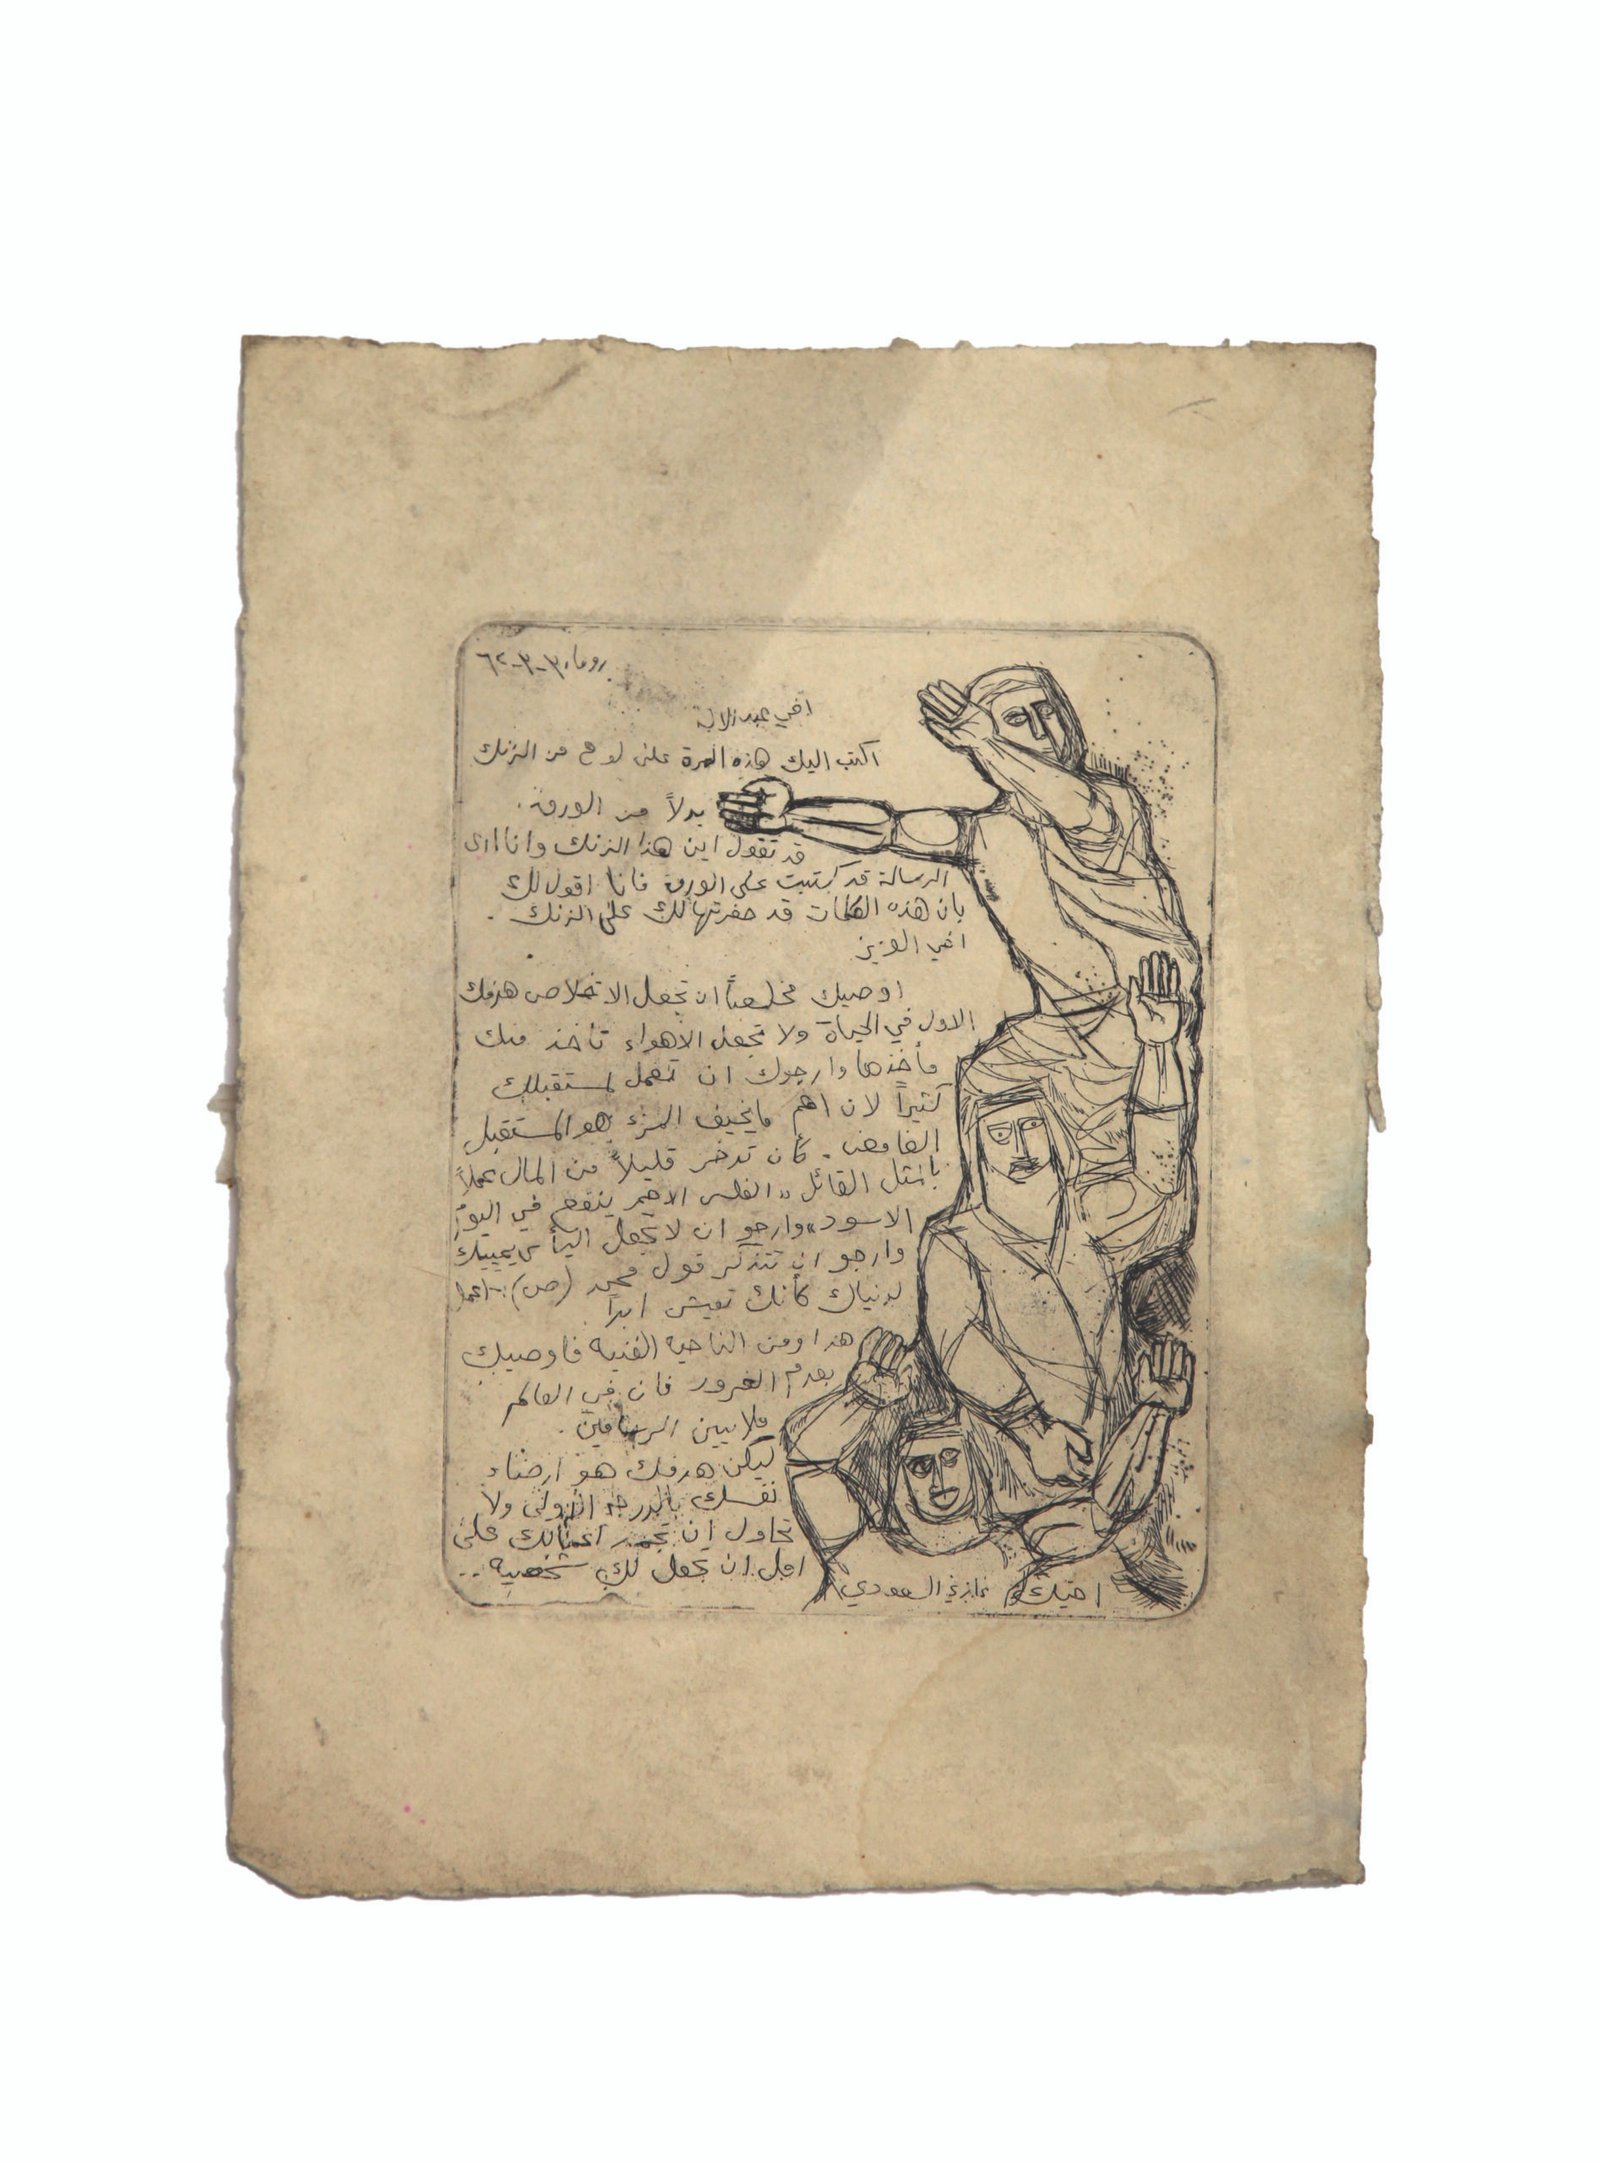 روما، ٣-٣-٦٢
اخي عبد الاله
اكتب اليك هذه المرة على لوح من الزنك
بدلاً من الورقة.
قد تقول اين هذا الزنك وانا ارى
الرسالة قد كتبت على الورقة فانا اقول لك
بان هذه الكلمات قد حفرتها لك على الزنك.
اخي العزيز
اوصيك مخلصاً ان تجعل الاخلاص هدفك
الاول في الحياة ولا تجعل الأهواء تأخذ منك
مأخذها وارجوك ان تعمل لمستقبلك
كثيراً لان أهم ما يخيف المرء هو المستقبل
الغامض. كأن تدخر قليلاً من المال عملاً
بالمثل القائل «الفلس الاحمر ينفع في اليوم
الاسود» وارجو ان لا تجعل اليأس يميتك
وارجو ان تتذكر قول محمد (ص):- اعمل
لدنياك كأنك تعيش ابداً
هذا ومن الناحيه الفنيه فاوصيك
بعدم الغرور فان في العالم
ملايين الرسامين.
ليكن هدفك هو ارضاء
نفسك بالدرجه الاولى ولا
تحاول ان تجبر اعمالك على
اجل ان تجعل لك شخصيه..
اخيك غازي السعودي